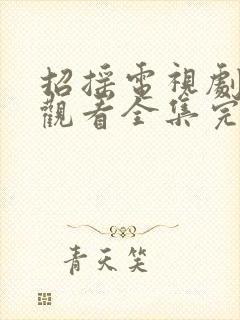 招搖電視劇
觀看全集完
青天笑